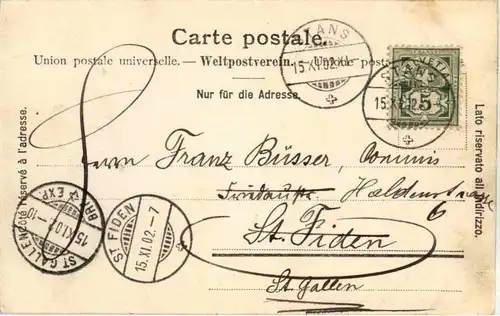 Carte postale.
Union postale universelle. — Weltpostverein. — Unione postale
Nur für die Adresse.
Côté réservé à l'adresse.
Lato riservato all'indirizzo.
STANS
15.XI.02.
HELVETIA
5
STANS
15.XI.02.
Herrn Franz Büsser, Commis
Haldenstrasse
6
St. Fiden
St. Gallen
ST. FIDEN
15.XI.02.-7
ST. GALLEN
15.XI.02.-10
BRF. EXP.